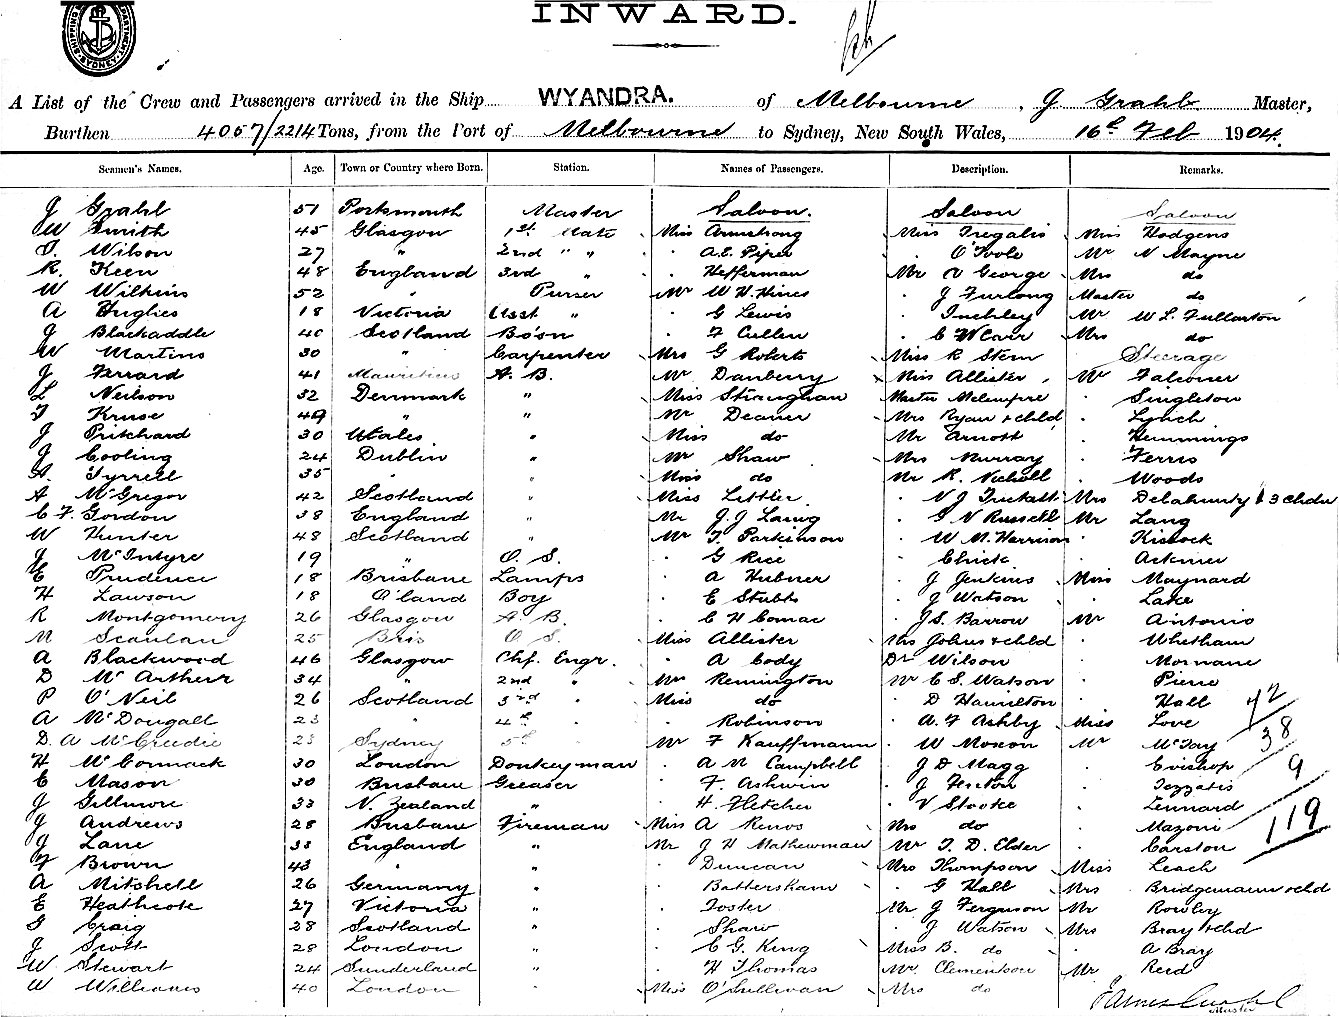 INWARD.
A List of the Crew and Passengers arrived in the Ship WYANDRA. of Melbourne, J Grahl Master,
Burthen 4057/2214 Tons, from the Port of Melbourne to Sydney, New South Wales, 16th Feb 1904.
Seamen's Names. Age. Town or Country where Born. Station. Names of Passengers. Description. Remarks.
J Grahl 51 Portsmouth Master Saloon. Saloon Saloon
W Smith 45 Glasgow 1st Mate Miss Armstrong Miss Tregalis Miss Hodgens
T. Wilson 27 " 2nd " " " A.E. Piper " O'Toole Mr N Mayne
R. Keen 48 England 3rd " " Hefferman Mr V George Mrs do
W Wilkins 52 " Purser Mr W H Hines " J Furlong Master do
A Hughes 18 Victoria Asst " " G Lewis " Inchley Mr W L Fullarton
J Blackaddle 40 Scotland Bo'sn " F Cullen " C W Carr Mrs do
W Martins 30 " Carpenter Mrs G Roberts Miss R Stern Steerage
J Ferrard 41 Mauritius A. B. Mr Danberry Miss Allister Mr Falconer
L Neilson 32 Denmark " Miss Straughan Master " Singleton
F Kruse 49 " " Mr Deaner Mrs Ryan & child " Lynch
J Pritchard 30 Wales. " Miss do Mr Arnott " Hemmings
J Cooling 24 Dublin " Mr Shaw Mrs Murray " Ferris
A. Tyrrell 35 " " Miss do Mr R. Nicholl " Woods
A McGregor 42 Scotland " Miss Littler " N J Trickett Mrs Delahunty & 3 chdn
C F. Gordon 38 England " Mr J. J Laing " I N Russell Mr Lang
W Hunter 48 Scotland " Mr T. Parkinson " W M. Harrison " Kissock
J McIntyre 19 " O. S. " G Rice " Chick " Ackmer
E Prudence 18 Brisbane Lamps " A Hubner " J Jenkins Miss Maynard
H Lawson 18 Q'land Boy " E Stubbs " J Watson " Lake
R Montgomery 26 Glasgow A. B. " C H Comac " J.S. Barrow Mr Antonio
M Scanlan 25 Bris O S. Miss Allister Mrs Johns & child " Whetham
A Blackwood 46 Glasgow Chf. Engr. " A Cody Dr Wilson " Mornane
D McArthur 34 " 2nd " Mr Remington Mr C S. Watson " Pierre
P O'Neil 26 Scotland 3rd " Miss do " D Hamilton " Hall 42
A McDougall 23 " 4th " " Robinson " A. F Ashby Miss Love
D. A McCreedie 23 Sydney 5th " Mr F Kauffmann " W Moxon Mr McTay 38
H McCormack 30 London Donkeyman " A M Campbell " J D Magg "
C Mason 30 Brisbane Greaser " F. Ashwin " J Fenton " 9
J Gillmore 33 N. Zealand " " H Fletcher " V Stooke " Lennard
J Andrews 28 Brisbane Fireman Miss A Renos Mrs do " Mazoni 119
J Lane 33 England " Mr J H Mathewman Mr T. D. Elder " Carston
F Brown 43 " " " Duncan Mrs Thompson Miss Leach
A Mitshell 26 Germany " " Battersham " G Hall Mrs Bridgemann & chld
E Heathcote 27 Victoria " " Foster Mr J Ferguson Mr Rowley
G Craig 28 Scotland " " Shaw " J Watson Mrs Bray & chd
J Scott 28 London " " C G. King Miss B. do " A Bray
W Stewart 24 Sunderland " " H Thomas Mr. Clementson Mr Reid
W Williams 40 London " Miss O'Sullivan Mrs do
Master